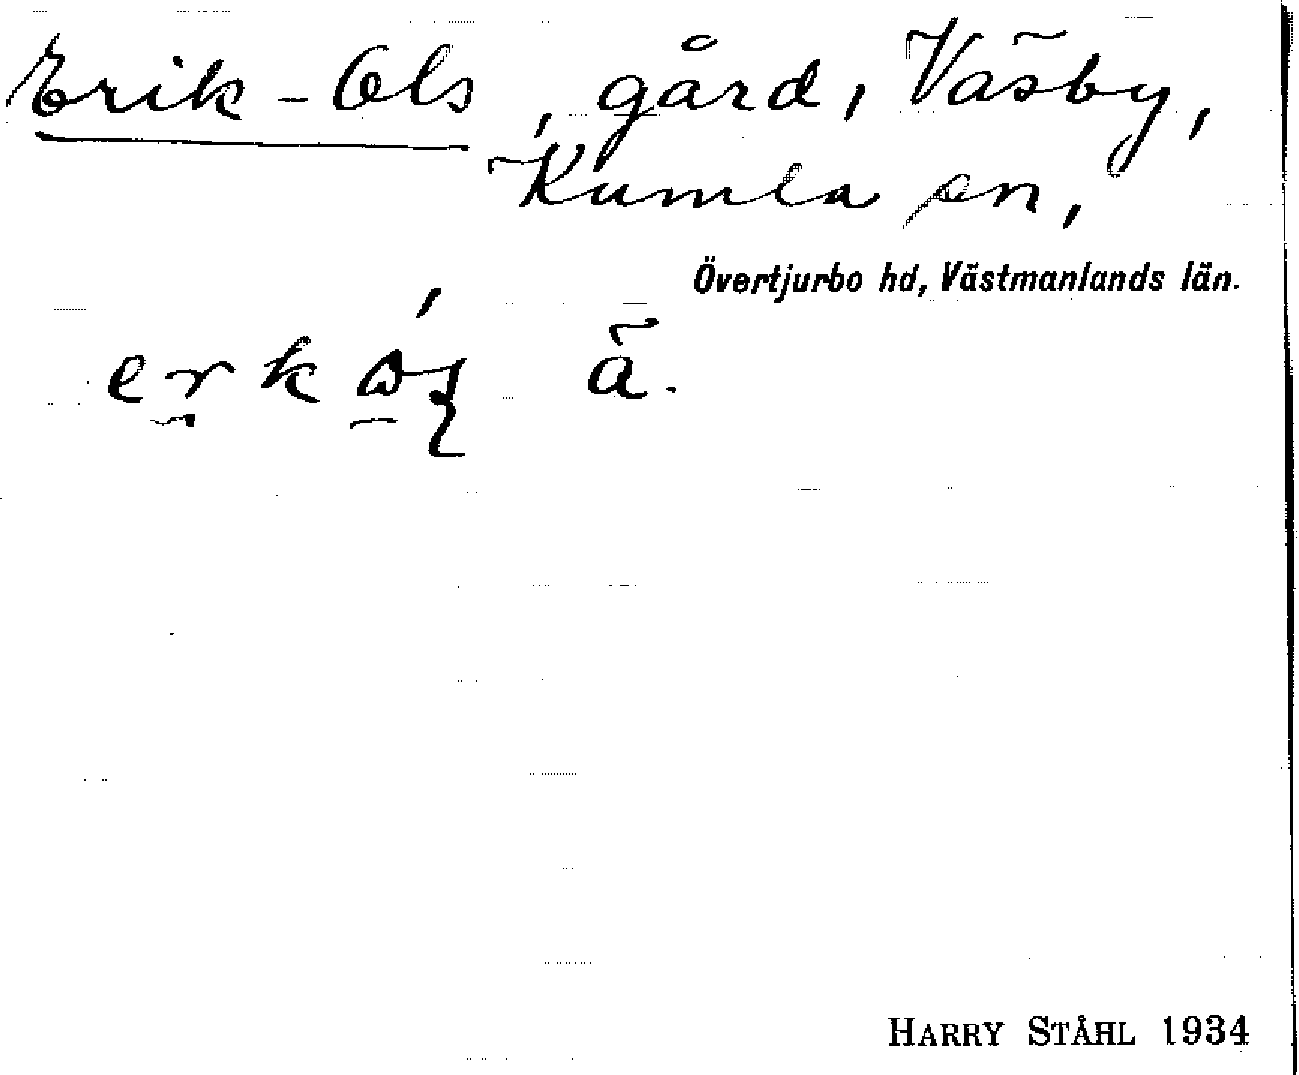 Erik-Ols, gård, Väsby,
Kumla sn,
Övertjurbo hd, Västmanlands län.
ä.
HARRY STÅHL 1934